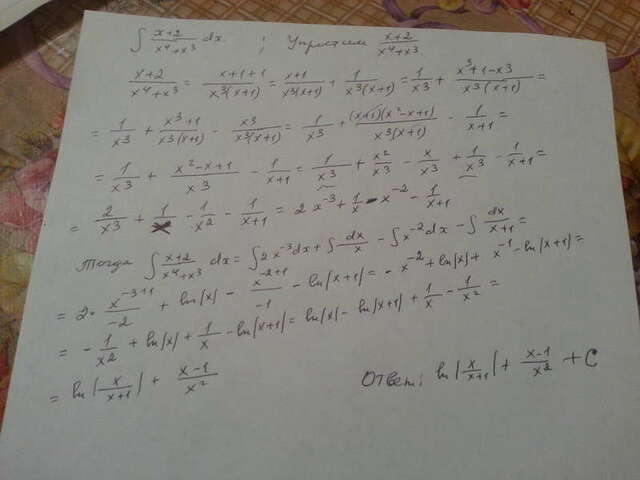 ∫ (x+2)/(x⁴+x³) dx ; Упростим (x+2)/(x⁴+x³)
(x+2)/(x⁴+x³) = (x+1+1)/(x³(x+1)) = (x+1)/(x³(x+1)) + 1/(x³(x+1)) = 1/x³ + (x³+1-x3)/(x³(x+1)) =
= 1/x3 + (x³+1)/(x3(x+1)) - x3/(x3(x+1)) = 1/x3 + ((x+1)(x²-x+1))/(x3(x+1)) - 1/(x+1) =
= 1/x3 + (x²-x+1)/x3 - 1/(x+1) = 1/x3 + x²/x3 - x/x3 + 1/x3 - 1/(x+1) =
= 2/x3 + 1/x - 1/x² - 1/(x+1) = 2x⁻³ + 1/x - x⁻² - 1/(x+1)
Тогда ∫ (x+2)/(x⁴+x³) dx = ∫2x⁻³dx + ∫dx/x - ∫x⁻²dx - ∫dx/(x+1) =
= 2· x⁻³⁺¹/-2 + ln|x| - x⁻²⁺¹/-1 - ln|x+1| = - x⁻² + ln|x| + x⁻¹ - ln|x+1| =
= - 1/x² + ln|x| + 1/x - ln|x+1| = ln|x| - ln|x+1| + 1/x - 1/x² =
= ln|x/(x+1)| + (x-1)/x² Ответ: ln|x/(x+1)| + (x-1)/x² + C